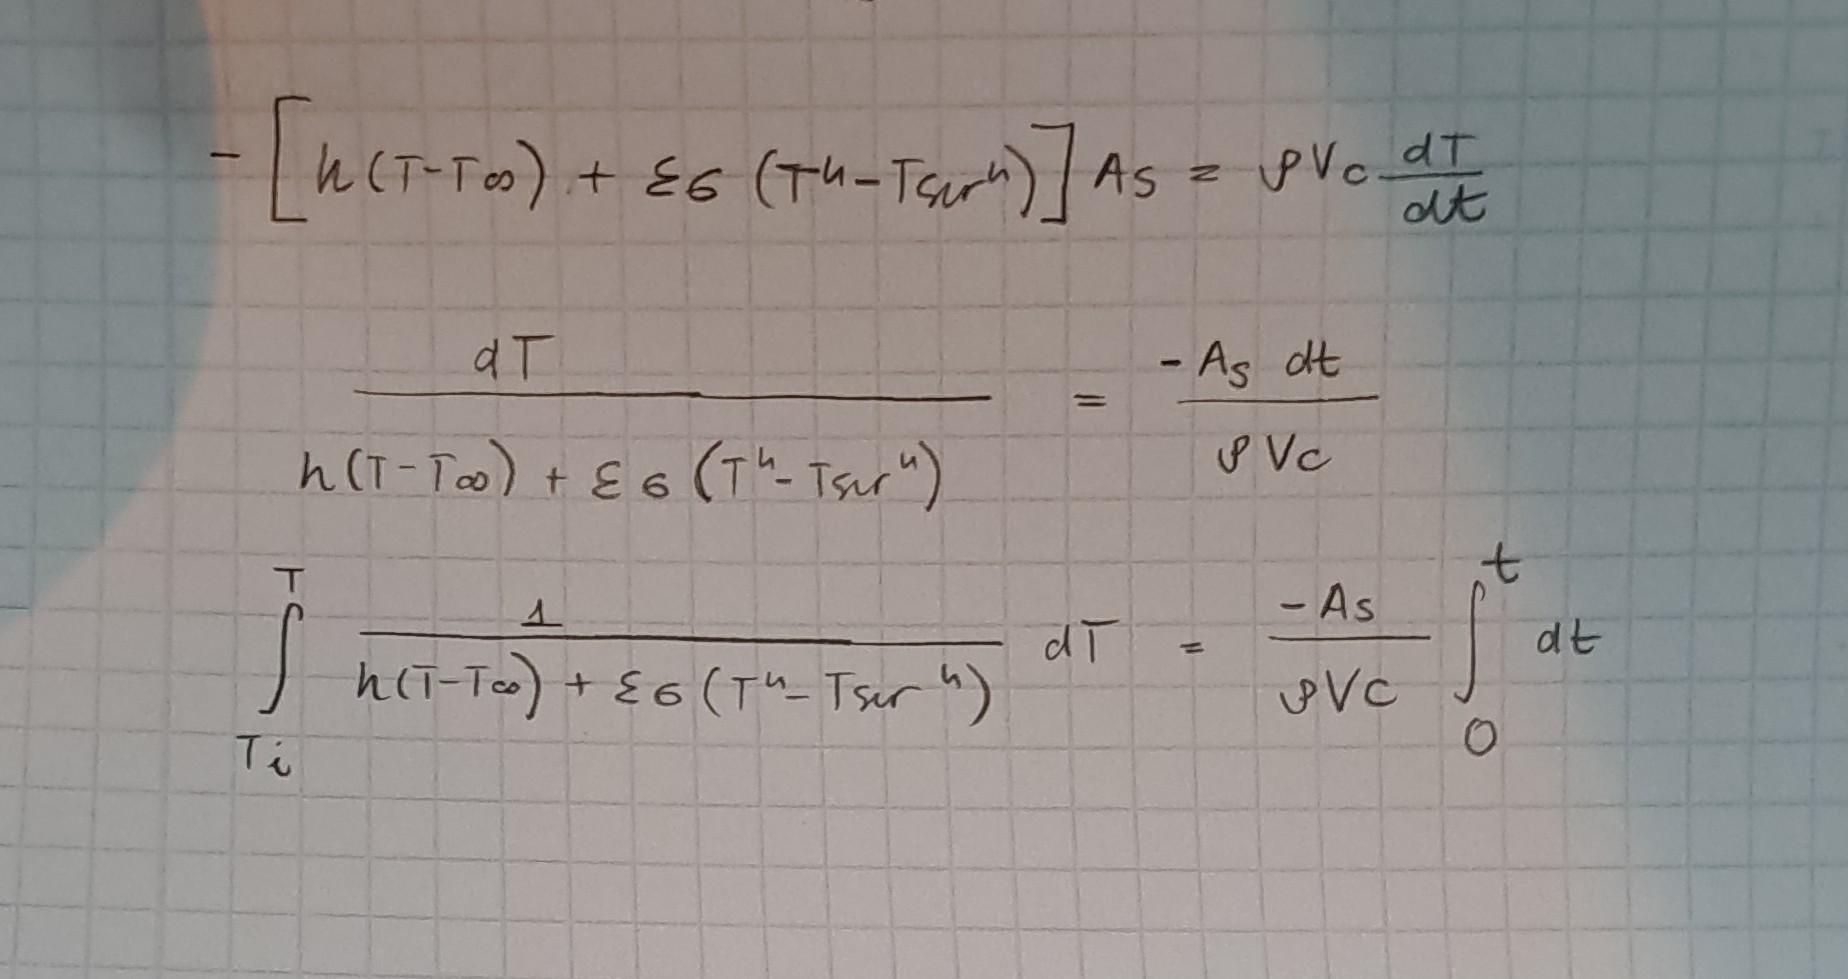 -[h(T-T∞) + εσ (T⁴-Tsur⁴)] As = ρVc dT/dt
dT / (h(T-T∞) + εσ (T⁴-Tsur⁴)) = -As dt / ρVc
∫_{Ti}^{T} 1 / (h(T-T∞) + εσ (T⁴-Tsur⁴)) dT = -As / ρVc ∫_{0}^{t} dt